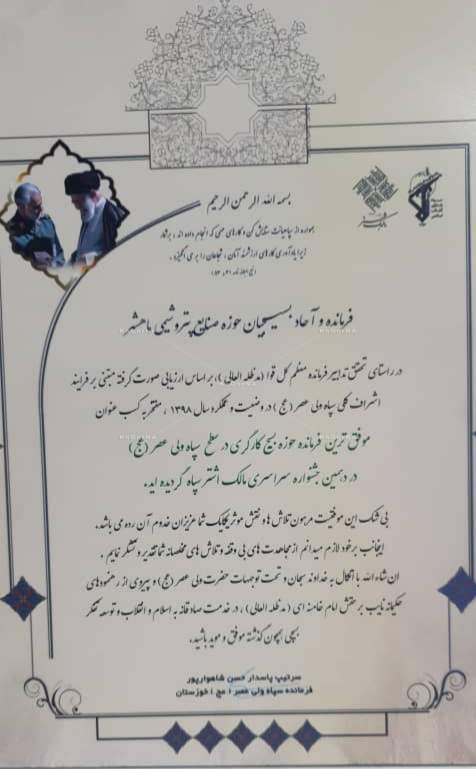 بسمه الله الرحمن الرحیم
همواره از سپاهیانت ستایش کن و کارهای مهمی که انجام داده اند ، برشمار
زیرا یادآوری کارهای ارزشمند آنان ، شجاعان را بر می انگیزد .
فرمانده و آحاد بسیجیان حوزه صنایع پتروشیمی ماهشهر
در راستای تحقق تدابیر فرمانده معظم کل قوا (مدظله العالی )، بر اساس ارزیابی صورت گرفته مبتنی بر فرایند
اشراف کلی سپاه ولی عصر (عج ) در وضعیت و عملکرد سال ۱۳۹۸ ، مفتخر به کسب عنوان
موفق ترین فرمانده حوزه بسیج کارگری در سطح سپاه ولی عصر (عج)
در دهمین جشنواره سراسری مالک اشتر سپاه گردیده اید.
بی شک این موفقیت مرهون تلاش ها و نقش موثر یکایک شما عزیزان خدوم آن رده می باشد.
اینجانب بر خود لازم میدانم از مجاهدت های بی وقفه و تلاش های مخلصانه شما تقدیر و تشکر نمایم .
ان شاء الله با اتکال به خداوند سبحان و تحت توجهات حضرت ولی عصر (عج) و پیروی از رهنمودهای
حکیمانه نایب برحقش امام خامنه ای (مدظله العالی) ، در خدمت صادقانه به اسلام و انقلاب و توسعه تفکر
بسیجی همچون گذشته موفق و موید باشید.
سرتیپ پاسدار حسن شاهوارپور
فرمانده سپاه ولی عصر (عج) خوزستان